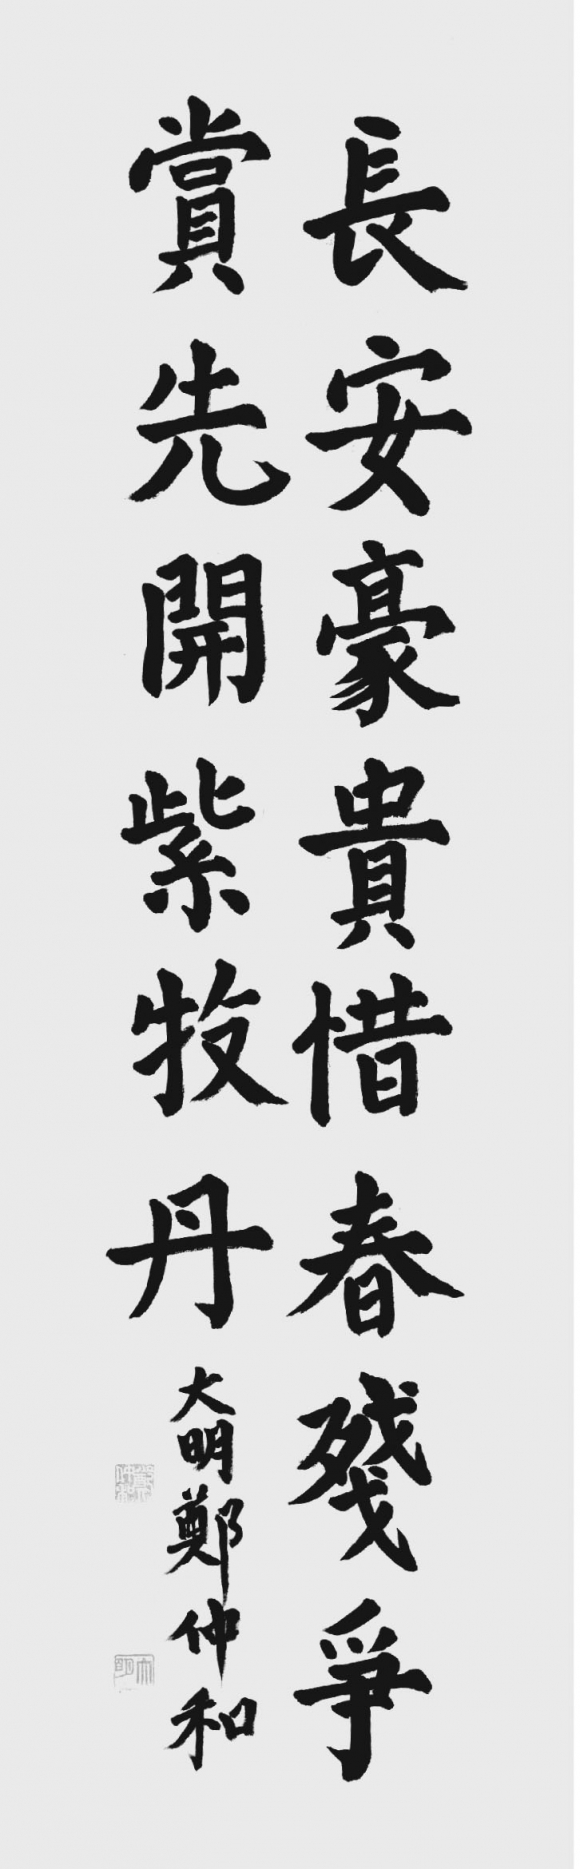 長安豪貴惜春殘爭
賞先開紫牧丹
大明鄭仲和